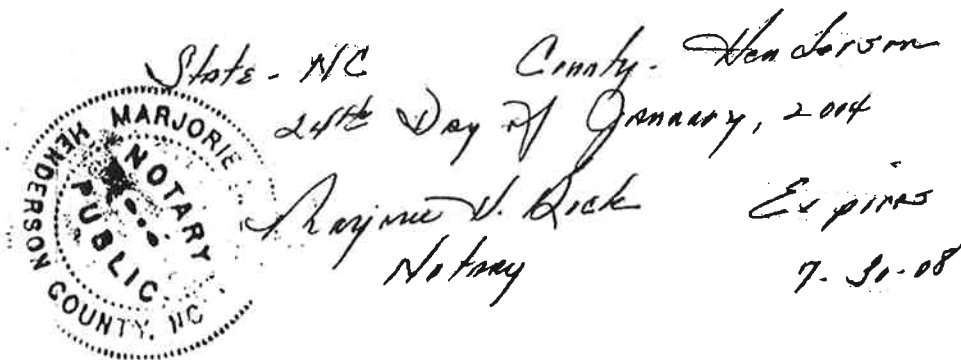 State - NC County - Henderson
24th Day of January, 2004
Marjorie V. Expires
Notary 7-30-08
MARJORIE
NOTARY
PUBLIC
HENDERSON COUNTY, NC